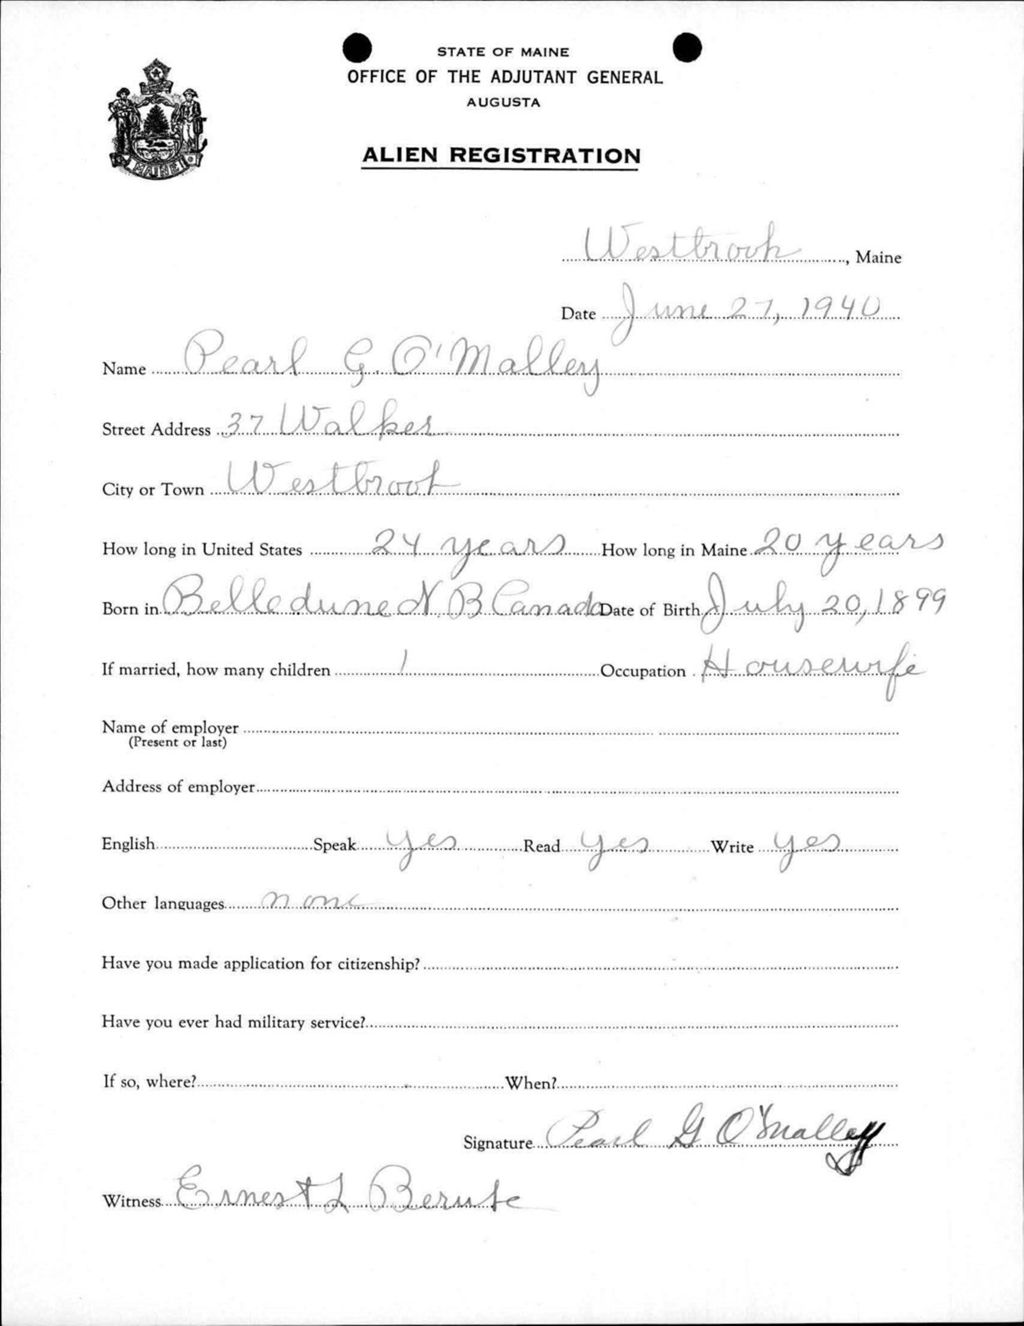 STATE OF MAINE
OFFICE OF THE ADJUTANT GENERAL
AUGUSTA
MAINE
ALIEN REGISTRATION
Westbrook, Maine
Date June 27, 1940
Name Pearl G. O'Malley
Street Address 37 Walker
City or Town Westbrook
How long in United States 24 years How long in Maine 20 years
Born in Belledune N.B Canada Date of Birth July 20, 1899
If married, how many children 1 Occupation Housewife
Name of employer
(Present or last)
Address of employer
English Speak yes Read yes Write yes
Other languages none
Have you made application for citizenship?
Have you ever had military service?
If so, where? When?
Signature Pearl G O'Malley
Witness Ernest L